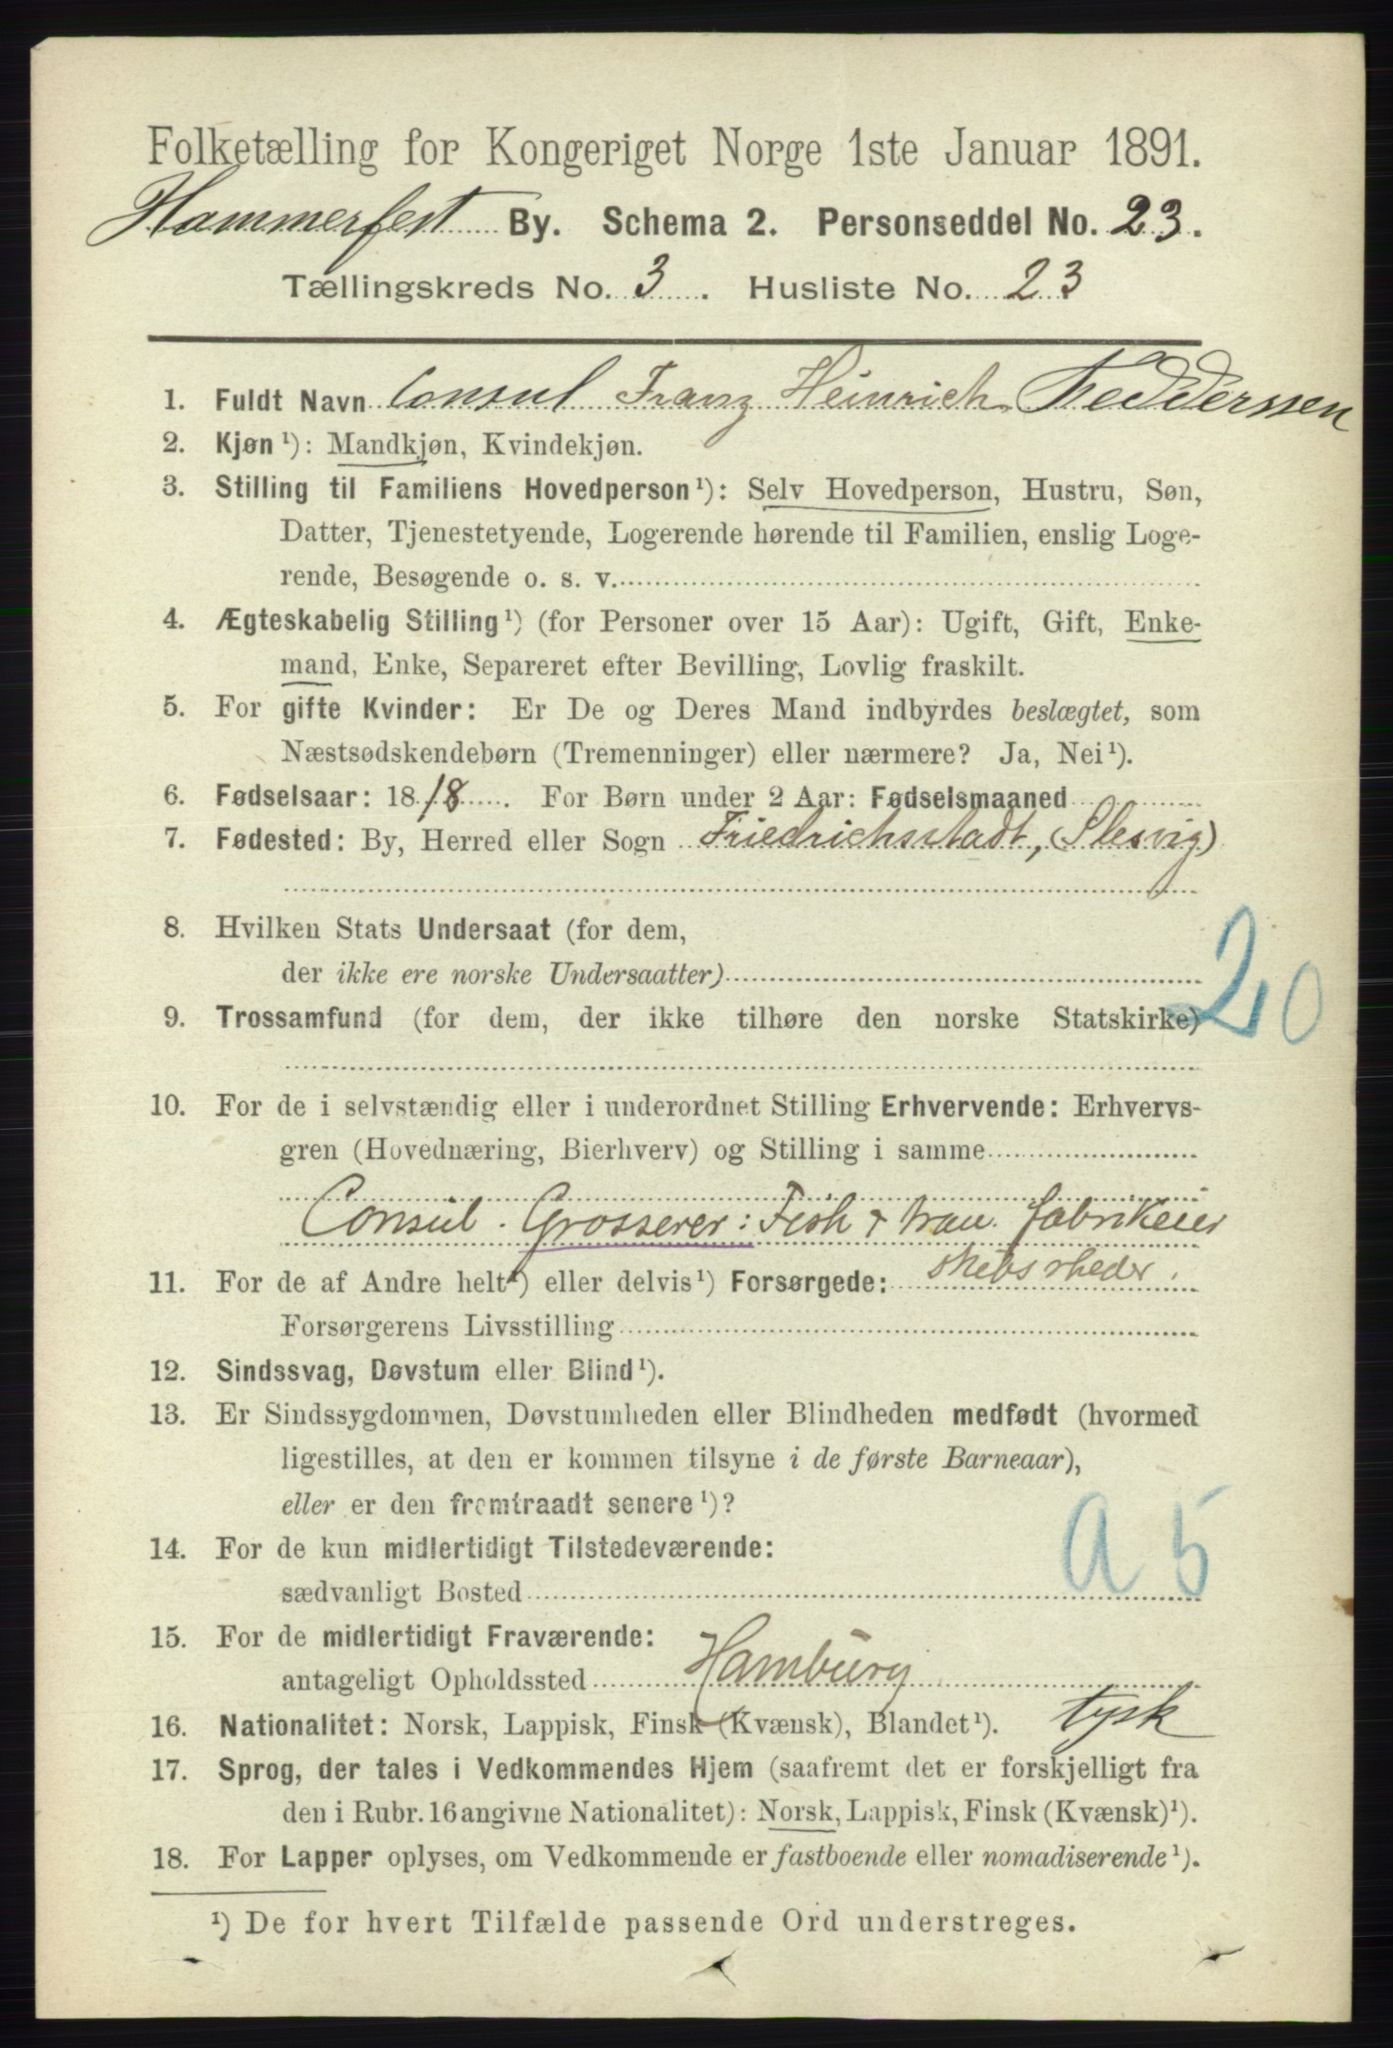 Folketælling for Kongeriget Norge 1ste Januar 1891.
Hammerfest By. Schema 2. Personseddel No. 23.
Tællingskreds No. 3. Husliste No. 23
1. Fuldt Navn Consul Franz Heinrich Feddersen
2. Kjøn¹): Mandkjøn, Kvindekjøn.
3. Stilling til Familiens Hovedperson¹): Selv Hovedperson, Hustru, Søn,
Datter, Tjenestetyende, Logerende hørende til Familien, enslig Loge-
rende, Besøgende o. s. v.
4. Ægteskabelig Stilling¹) (for Personer over 15 Aar): Ugift, Gift, Enke-
mand, Enke, Separeret efter Bevilling, Lovlig fraskilt.
5. For gifte Kvinder: Er De og Deres Mand indbyrdes beslægtet, som
Næstsødskendebørn (Tremenninger) eller nærmere? Ja, Nei¹).
6. Fødselsaar: 1818. For Børn under 2 Aar: Fødselsmaaned
7. Fødested: By, Herred eller Sogn Friedrichsstadt, (Slesvig)
8. Hvilken Stats Undersaat (for dem,
der ikke ere norske Undersaatter)
20
9. Trossamfund (for dem, der ikke tilhøre den norske Statskirke)
10. For de i selvstændig eller i underordnet Stilling Erhvervende: Erhvervs-
gren (Hovednæring, Bierhverv) og Stilling i samme
Consul. Grosserer: Fisk & tran. fabrikeier
skibsrheder.
11. For de af Andre helt¹) eller delvis¹) Forsørgede:
Forsørgerens Livsstilling
12. Sindssvag, Døvstum eller Blind¹).
13. Er Sindssygdommen, Døvstumheden eller Blindheden medfødt (hvormed
ligestilles, at den er kommen tilsyne i de første Barneaar),
eller er den fremtraadt senere¹)?
14. For de kun midlertidigt Tilstedeværende:
sædvanligt Bosted
a 5
15. For de midlertidigt Fraværende:
antageligt Opholdssted Hamburg
16. Nationalitet: Norsk, Lappisk, Finsk (Kvænsk), Blandet¹). tysk
17. Sprog, der tales i Vedkommendes Hjem (saafremt det er forskjelligt fra
den i Rubr. 16 angivne Nationalitet): Norsk, Lappisk, Finsk (Kvænsk)¹).
18. For Lapper oplyses, om Vedkommende er fastboende eller nomadiserende¹).
¹) De for hvert Tilfælde passende Ord understreges.